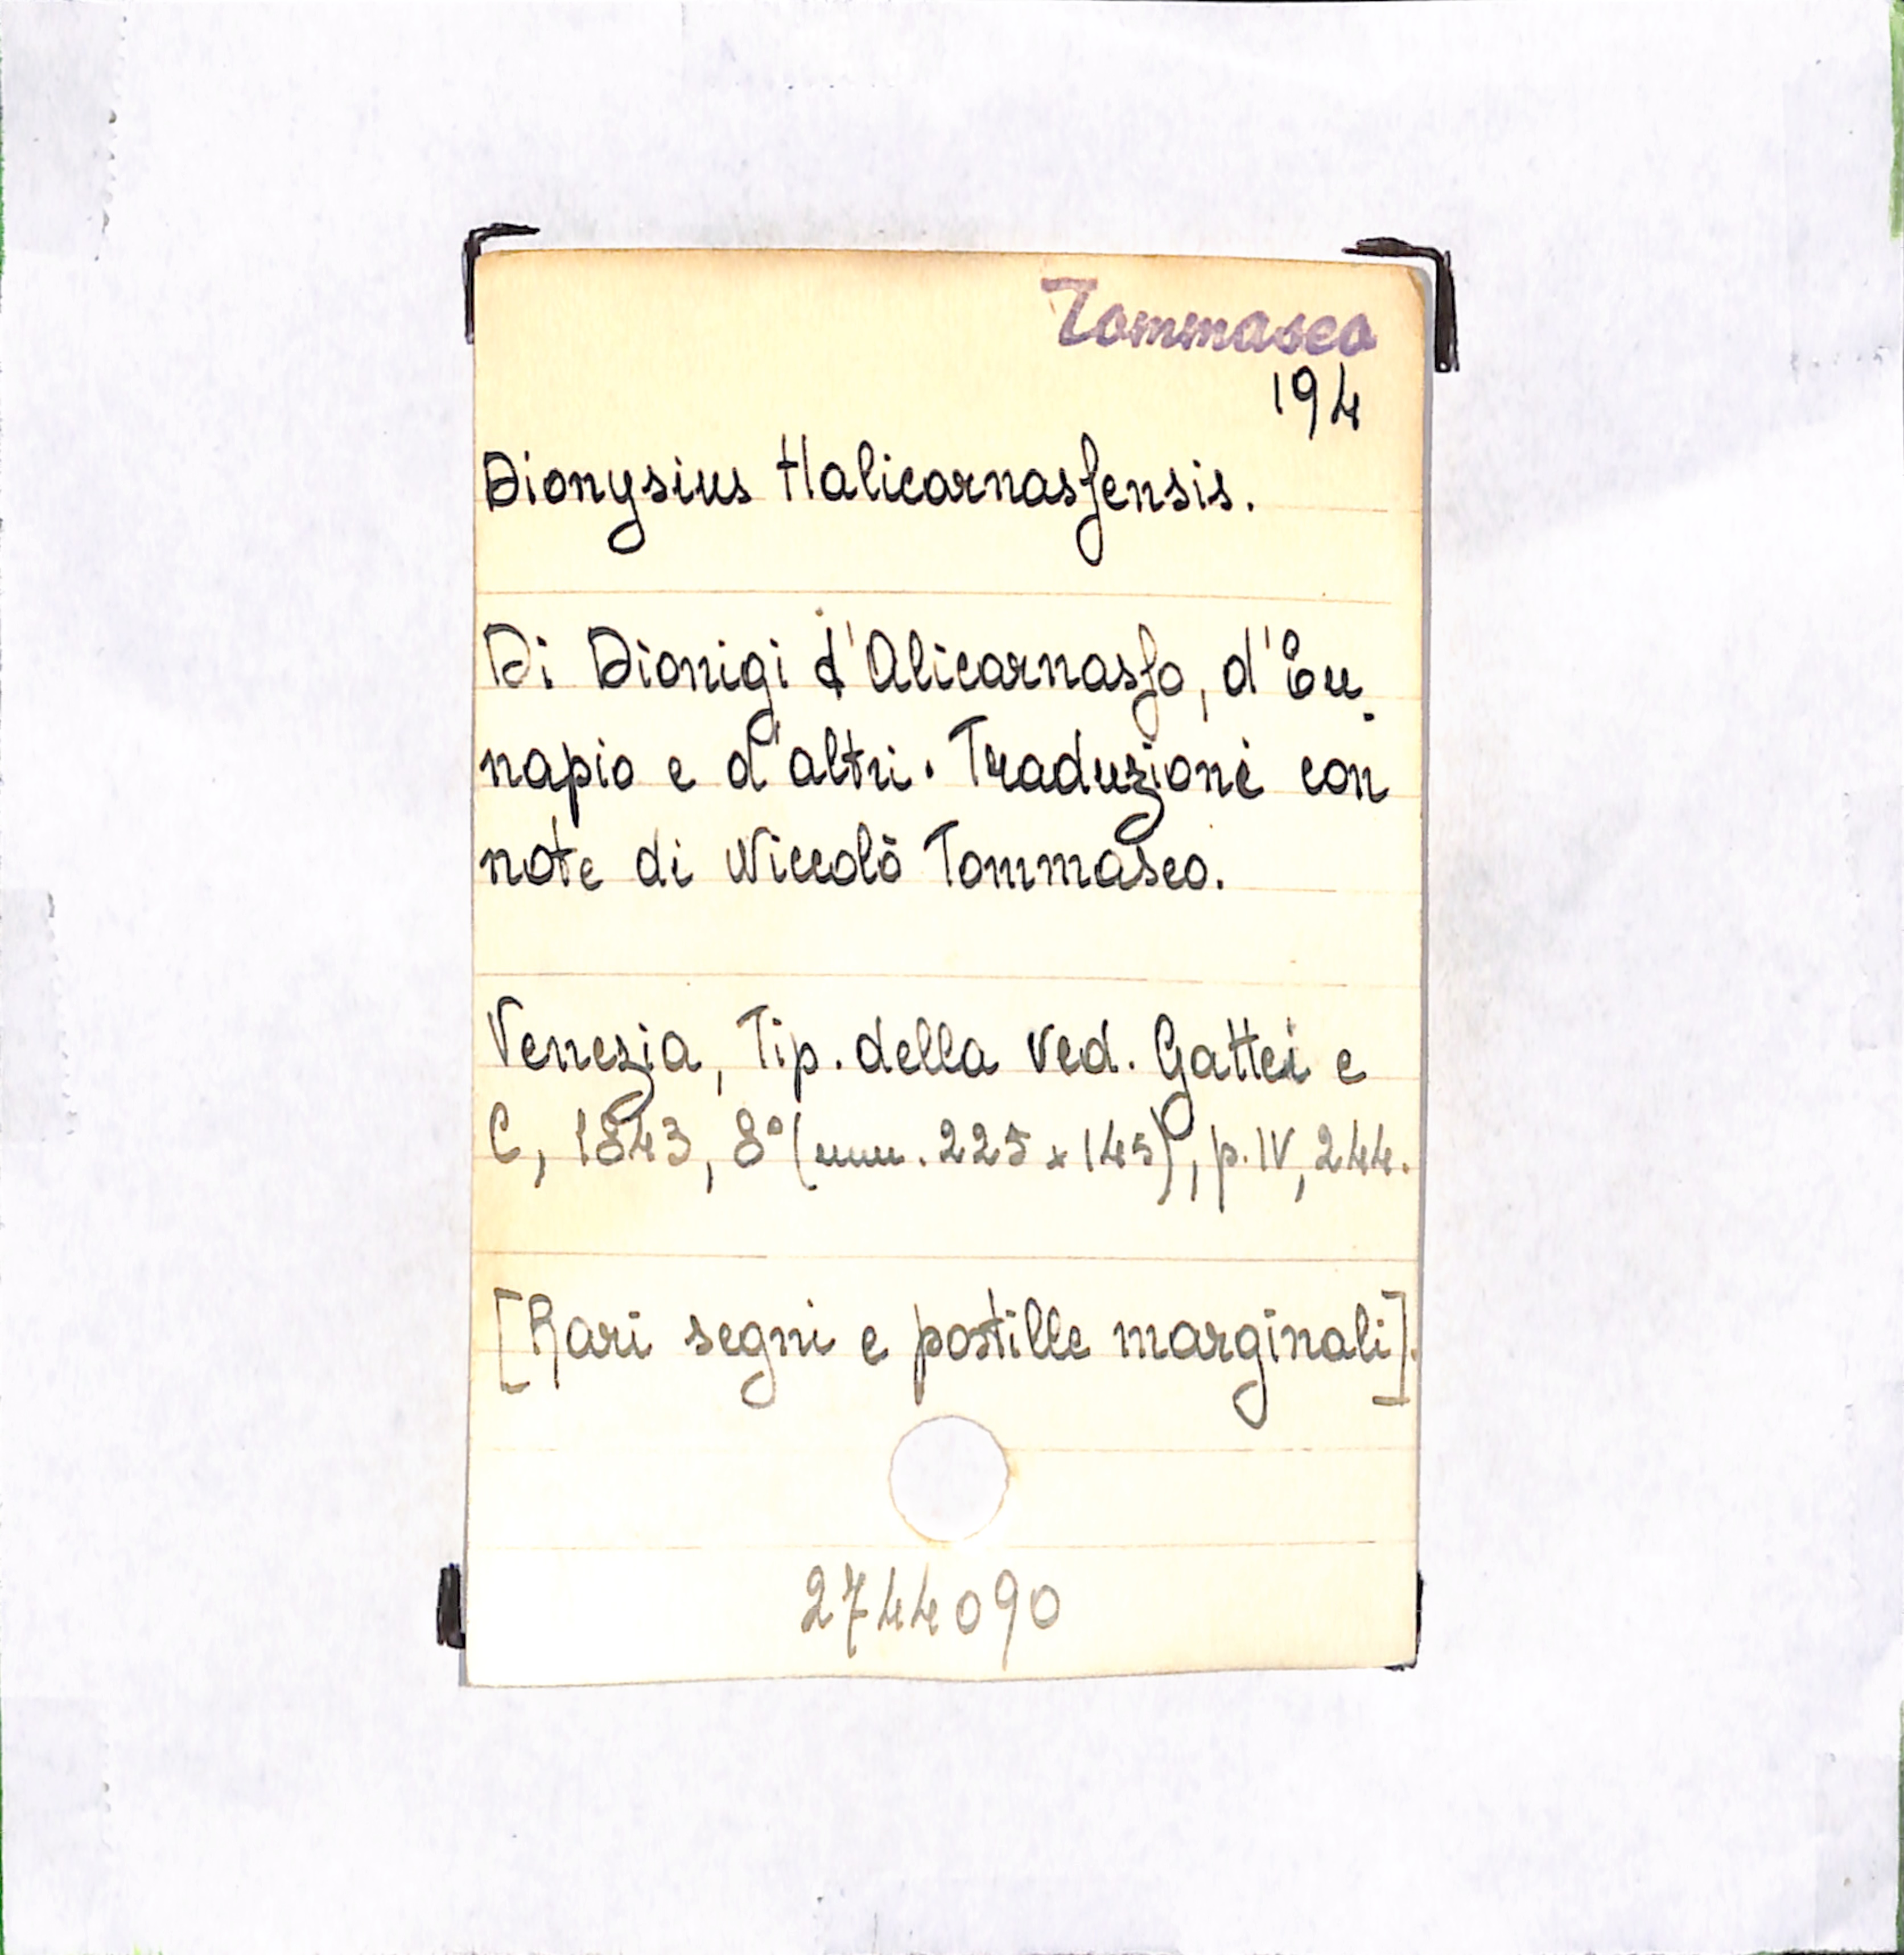 Tommaseo
194
Dionysius Halicarnassensis.
Di Dionigi d'Alicarnasso, d'Eu-
napio e d'altri. Traduzione con
note di Niccolò Tommaseo.
Venezia, Tip. della Ved. Gattei e
C, 1843, 8° (mm. 225 x 145), p. IV, 244.
[Rari segni e postille marginali].
2744090